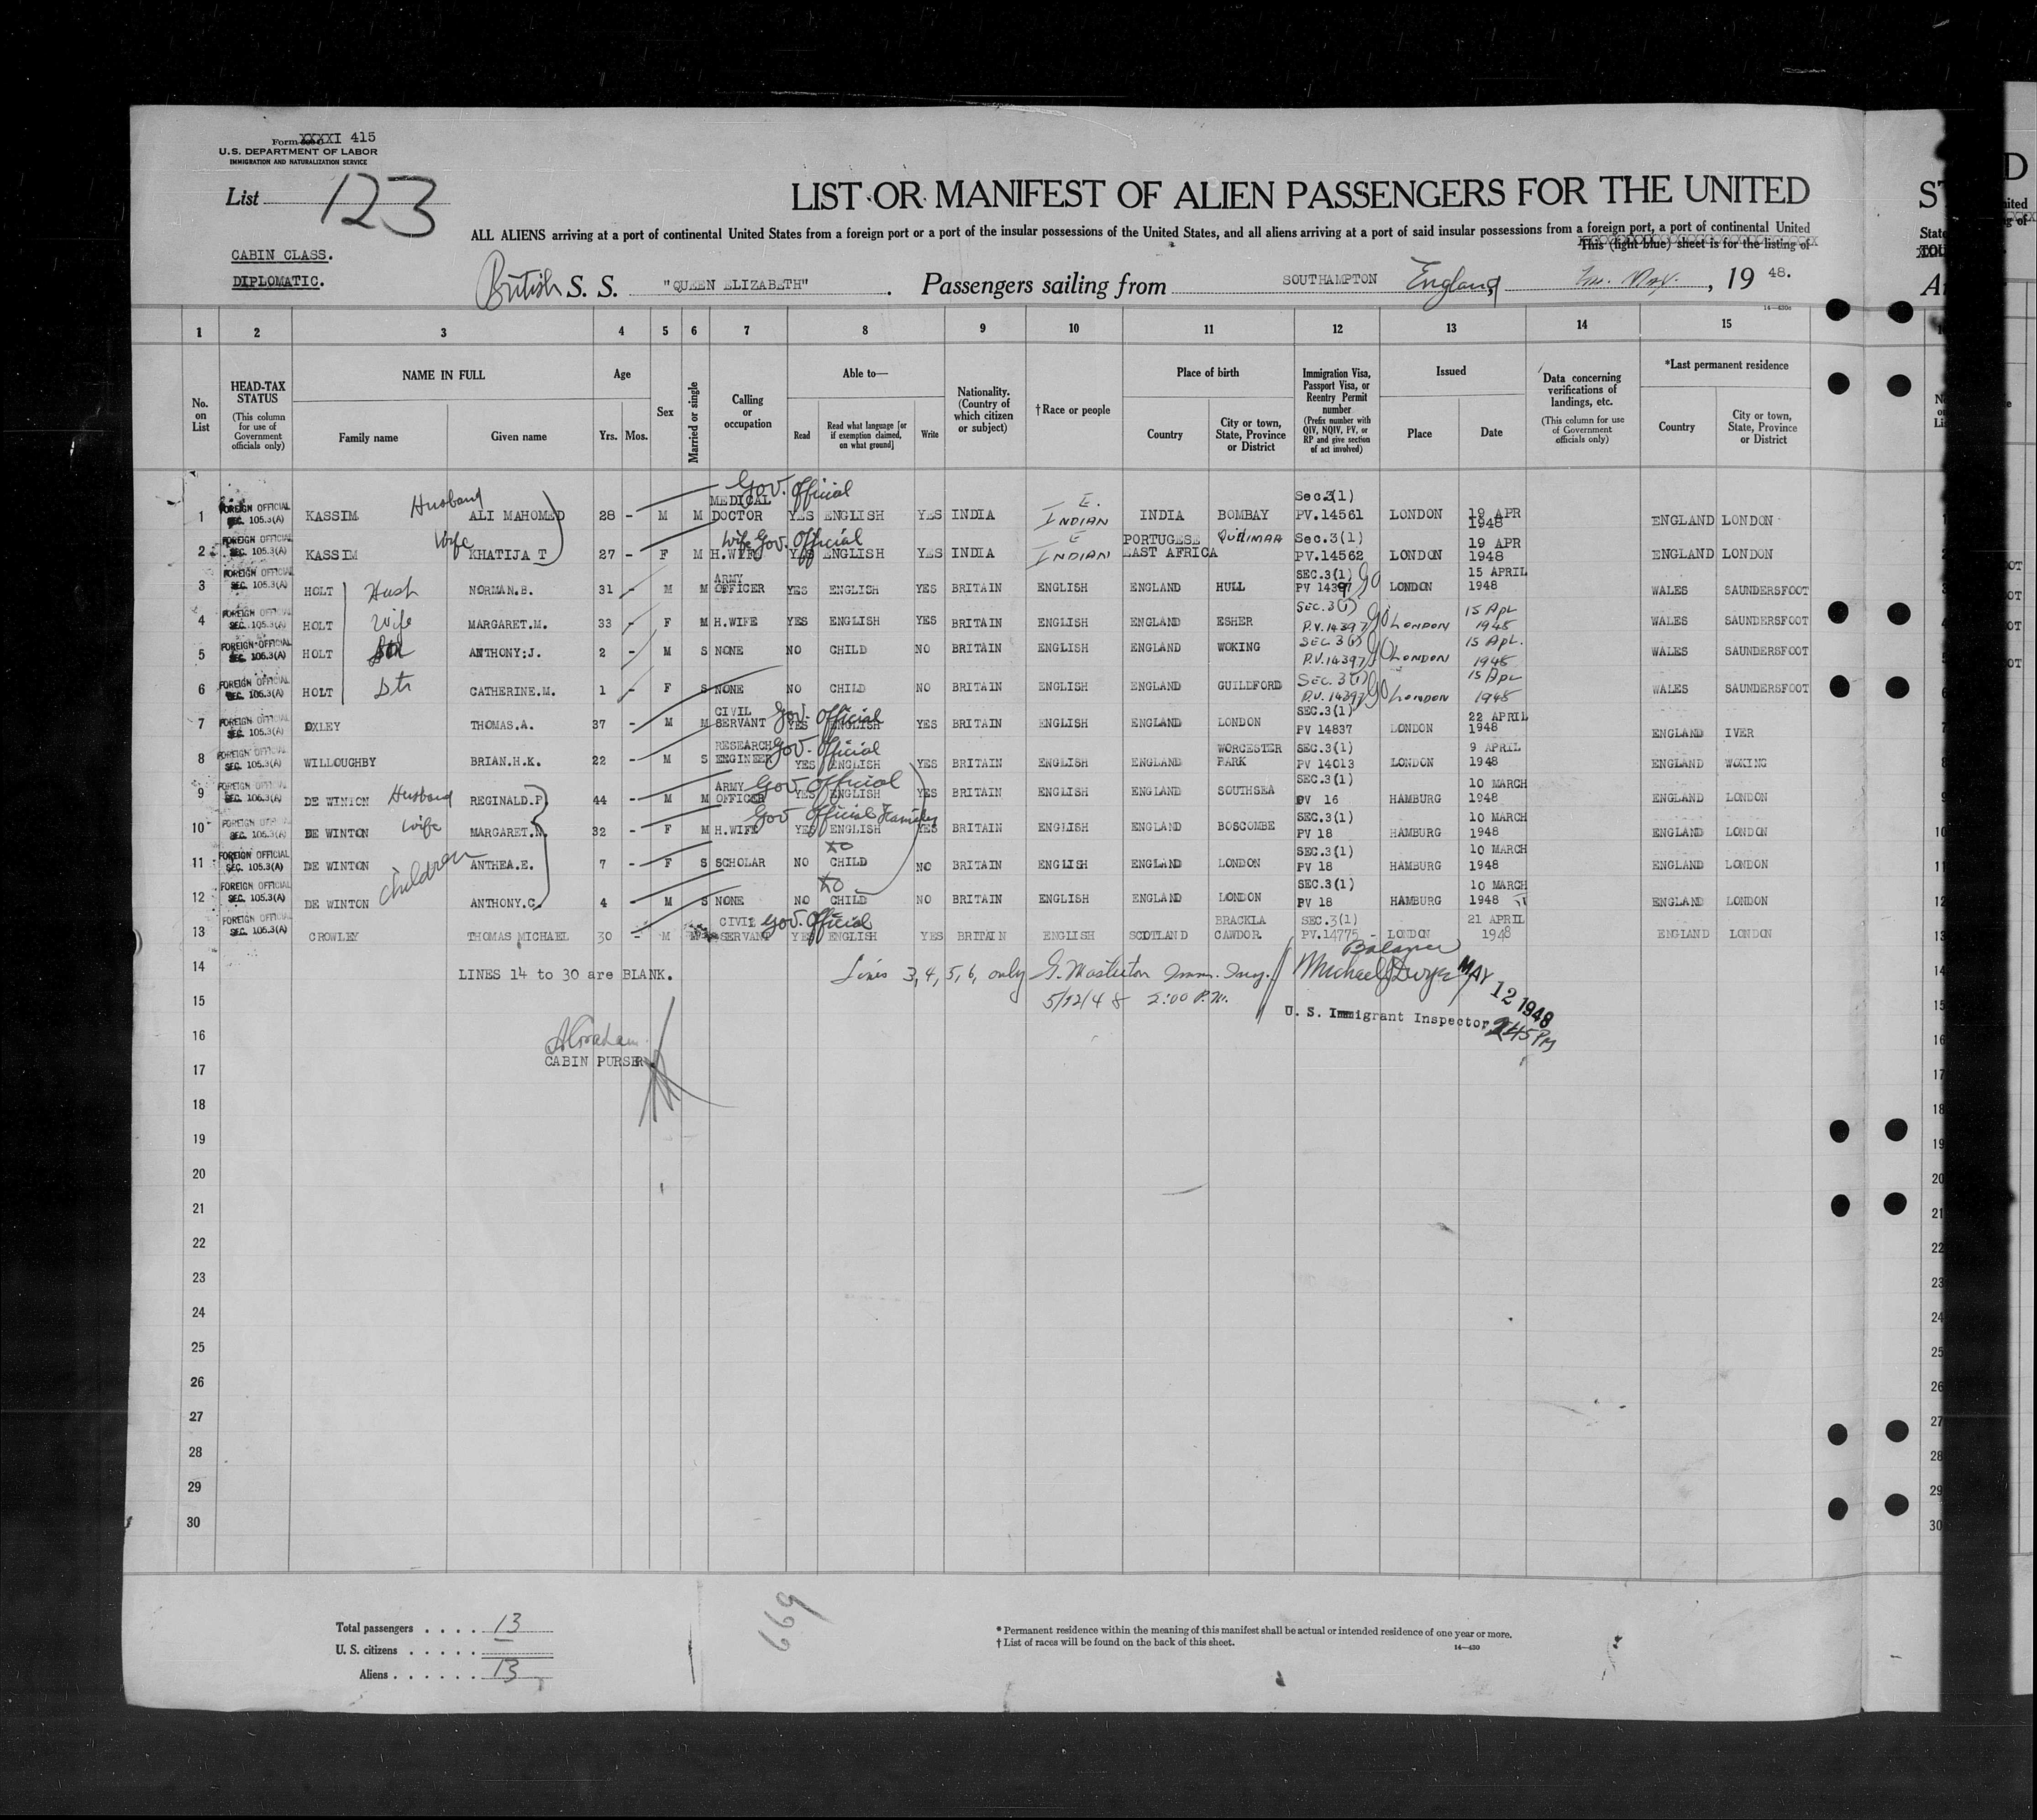 Form XXXXI 415
U.S. DEPARTMENT OF LABOR
IMMIGRATION AND NATURALIZATION SERVICE
List 123
LIST OR MANIFEST OF ALIEN PASSENGERS FOR THE UNITED
ST
ALL ALIENS arriving at a port of continental United States from a foreign port or a port of the insular possessions of the United States, and all aliens arriving at a port of said insular possessions from a foreign port, a port of continental United
State
This (light blue) sheet is for the listing of
CABIN CLASS.
DIPLOMATIC.
British S. S. "QUEEN ELIZABETH". Passengers sailing from SOUTHAMPTON England, 19 48.
14—430a
1 2 3 4 5 6 7 8 9 10 11 12 13 14 15
No. on List
HEAD-TAX STATUS (This column for use of Government officials only)
NAME IN FULL
Family name Given name
Age
Yrs. Mos.
Sex
Married or single
Calling or occupation
Able to—
Read Read what language [or if exemption claimed, on what ground] Write
Nationality. (Country of which citizen or subject)
†Race or people
Place of birth
Country City or town, State, Province or District
Immigration Visa, Passport Visa, or Reentry Permit number (Prefix number with QIV, NQIV, PV, or RP and give section of act involved)
Issued
Place Date
Data concerning verifications of landings, etc. (This column for use of Government officials only)
*Last permanent residence
Country City or town, State, Province or District
1 FOREIGN OFFICIAL SEC. 105.3(A) KASSIM Husband ALI MAHOMED 28 - M M MEDICAL DOCTOR Gov. Official YES ENGLISH YES INDIA E. INDIAN INDIA BOMBAY Sec.3(1) PV.14561 LONDON 19 APR 1948 ENGLAND LONDON
2 FOREIGN OFFICIAL SEC. 105.3(A) KASSIM Wife KHATIJA T 27 - F M H.WIFE Wife Gov. Official YES ENGLISH YES INDIA E INDIAN PORTUGESE EAST AFRICA Sec.3(1) PV.14562 LONDON 19 APR 1948 ENGLAND LONDON
3 FOREIGN OFFICIAL SEC. 105.3(A) HOLT Hush NORMAN.B. 31 - M M ARMY OFFICER YES ENGLISH YES BRITAIN ENGLISH ENGLAND HULL SEC.3(1) PV 14397 LONDON 15 APRIL 1948 WALES SAUNDERSFOOT
4 FOREIGN OFFICIAL SEC. 105.3(A) HOLT Wife MARGARET.M. 33 - F M H.WIFE YES ENGLISH YES BRITAIN ENGLISH ENGLAND ESHER SEC.3(1) P.V.14397 LONDON 15 APL 1948 WALES SAUNDERSFOOT
5 FOREIGN OFFICIAL SEC. 105.3(A) HOLT Son ANTHONY:J. 2 - M S NONE NO CHILD NO BRITAIN ENGLISH ENGLAND WOKING SEC 3(1) P.V.14397 LONDON 15 APL. 1948 WALES SAUNDERSFOOT
6 FOREIGN OFFICIAL SEC. 105.3(A) HOLT Dtr CATHERINE.M. 1 - F S NONE NO CHILD NO BRITAIN ENGLISH ENGLAND GUILDFORD SEC. 3(1) P.V. 14397 LONDON 15 APL 1948 WALES SAUNDERSFOOT
7 FOREIGN OFFICIAL SEC. 105.3(A) OXLEY THOMAS.A. 37 - M M CIVIL SERVANT Gov. Official YES ENGLISH YES BRITAIN ENGLISH ENGLAND LONDON SEC.3(1) PV 14837 LONDON 22 APRIL 1948 ENGLAND IVER
8 FOREIGN OFFICIAL SEC. 105.3(A) WILLOUGHBY BRIAN.H.K. 22 - M S RESEARCH ENGINEER Gov. Official YES ENGLISH YES BRITAIN ENGLISH ENGLAND WORCESTER PARK SEC.3(1) PV 14013 LONDON 9 APRIL 1948 ENGLAND WOKING
9 FOREIGN OFFICIAL SEC. 105.3(A) DE WINTON Husband REGINALD.P. 44 - M M ARMY OFFICER Gov Official YES ENGLISH YES BRITAIN ENGLISH ENGLAND SOUTHSEA SEC.3(1) PV 16 HAMBURG 10 MARCH 1948 ENGLAND LONDON
10 FOREIGN OFFICIAL SEC. 105.3(A) DE WINTON Wife MARGARET.N. 32 - F M H.WIFE Gov Official Family YES ENGLISH YES BRITAIN ENGLISH ENGLAND BOSCOMBE SEC.3(1) PV 18 HAMBURG 10 MARCH 1948 ENGLAND LONDON
11 FOREIGN OFFICIAL SEC. 105.3(A) DE WINTON children ANTHEA.E. 7 - F S SCHOLAR NO CHILD NO BRITAIN ENGLISH ENGLAND LONDON SEC.3(1) PV 18 HAMBURG 10 MARCH 1948 ENGLAND LONDON
12 FOREIGN OFFICIAL SEC. 105.3(A) DE WINTON ANTHONY.C. 4 - M S NONE NO CHILD NO BRITAIN ENGLISH ENGLAND LONDON SEC.3(1) PV 18 HAMBURG 10 MARCH 1948 ENGLAND LONDON
13 FOREIGN OFFICIAL SEC. 105.3(A) CROWLEY THOMAS MICHAEL 30 - M CIVIL SERVANT Gov. Official YES ENGLISH YES BRITAIN ENGLISH SCOTLAND BRACKLA CAWDOR. SEC.3(1) PV.14775 - LONDON 21 APRIL 1948 ENGLAND LONDON
14 LINES 14 to 30 are BLANK. Lines 3,4,5,6, only G. Masterton Imm. Insp. Balance Michael J Dwyer MAY 12 1948
15 5/12/48 2:00 P.M. U. S. Immigrant Inspector 245 PM
16
CABIN PURSER
17
18
19
20
21
22
23
24
25
26
27
28
29
30
669
Total passengers . . . . 13
U. S. citizens . . . . .
Aliens . . . . . . 13
* Permanent residence within the meaning of this manifest shall be actual or intended residence of one year or more.
† List of races will be found on the back of this sheet.
14—430